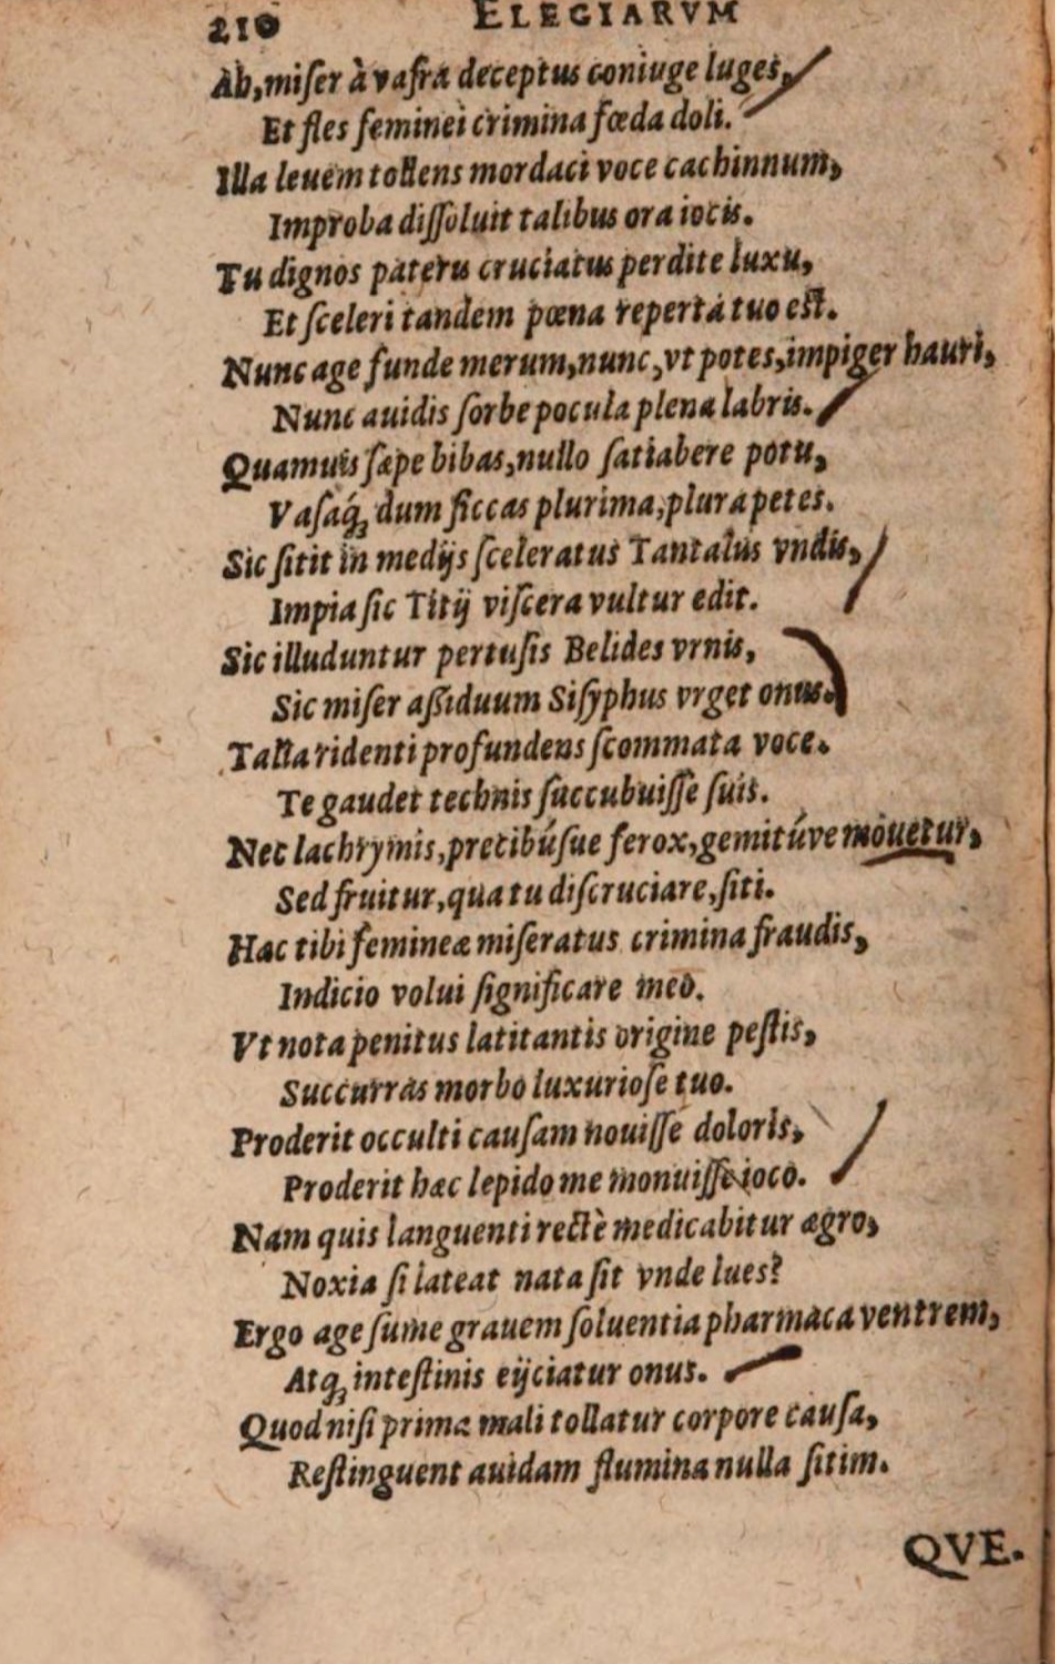 210 ELEGIARVM
Ah, miſer à vafra deceptus coniuge luges,
Et fles feminei crimina fœda doli.
Illa leuem tollens mordaci voce cachinnum,
Improba diſſoluit talibus ora iocis.
Tu dignos pateris cruciatus perdite luxu,
Et ſceleri tandem pœna reperta tuo eſt.
Nunc age funde merum, nunc, vt potes, impiger hauri,
Nunc auidis ſorbe pocula plena labris.
Quamuis ſæpe bibas, nullo ſatiabere potu,
Vaſaq́; dum ſiccas plurima, plura petes.
Sic ſitit in medijs ſceleratus Tantalus vndis,
Impia ſic Titij viſcera vultur edit.
Sic illuduntur pertuſis Belides vrnis,
Sic miſer aßiduum Siſyphus vrget onus.
Talia ridenti profundens ſcommata voce.
Te gaudet technis ſuccubuiſſe ſuis.
Nec lachrymis, precibúſue ferox, gemitúve mouetur,
Sed fruitur, qua tu diſcruciare, ſiti.
Hac tibi femineæ miſeratus crimina fraudis,
Indicio volui ſignificare meo.
Vt nota penitus latitantis origine peſtis,
Succurras morbo luxurioſe tuo.
Proderit occulti cauſam nouiſſe doloris,
Proderit hæc lepido me monuiſſe ioco.
Nam quis languenti rectè medicabitur ægro,
Noxia ſi lateat nata ſit vnde lues?
Ergo age ſume grauem ſoluentia pharmaca ventrem,
Atq; inteſtinis eijciatur onus.
Quod niſi prima mali tollatur corpore cauſa,
Reſtinguent auidam flumina nulla ſitim.
QVE.